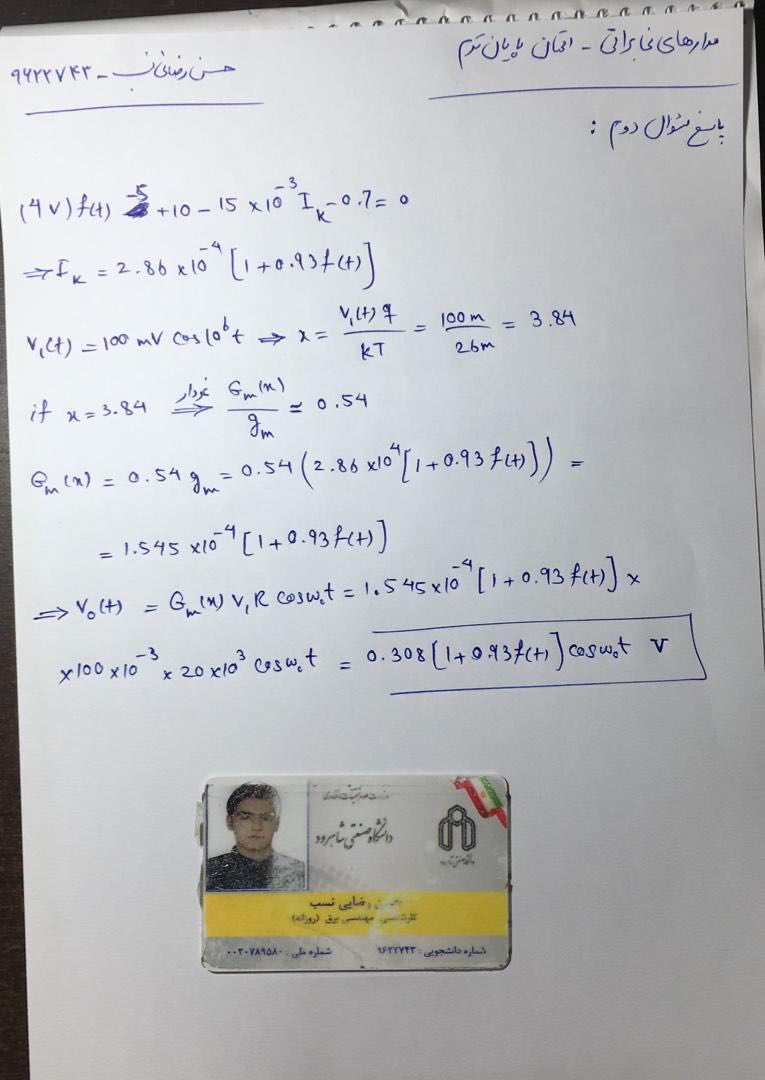 مدارهای مخابراتی - امتحان پایان ترم
حسن رضائی نسب - ۹۶۲۲۷۴۳
پاسخ سؤال دوم :
(4V) f(t) -5 +10 - 15 ×10⁻³ I_K - 0.7 = 0
⇒ I_K = 2.86 ×10⁻⁴ [1+0.93 f(t)]
V₁(t) = 100 mV cos10⁶t ⇒ x = V₁(t) q / kT = 100m / 26m = 3.84
if x = 3.84 نمودار ⇒ G_m(x) / g_m ≃ 0.54
G_m(x) = 0.54 g_m = 0.54 (2.86 ×10⁴ [1+0.93 f(t)]) =
= 1.545 ×10⁻⁴ [1+0.93 f(t)]
⇒ V₀(t) = G_m(x) V₁ R cosω₀t = 1.545×10⁻⁴ [1+0.93 f(t)] ×
×100 ×10⁻³ × 20 ×10³ cosω₀t = 0.308 [1+0.93f(t)] cosω₀t V
وزارت علوم تحقیقات و فناوری
دانشگاه صنعتی شاهرود
رضایی نسب
کارشناسی مهندسی برق (روزانه)
شماره دانشجویی : ۹۶۲۲۷۴۳
شماره ملی : ۰۰۲۰۷۸۹۵۸۰